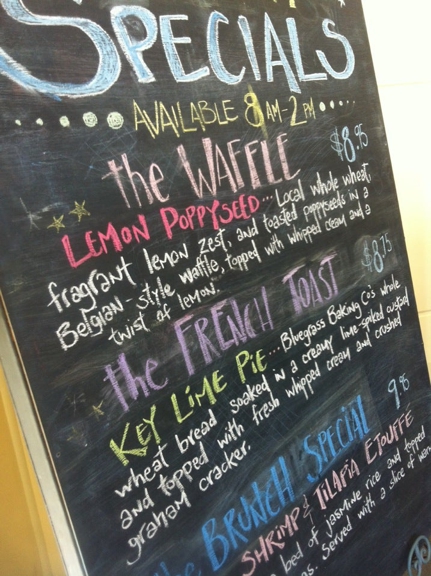 SPECIALS
AVAILABLE 8 AM - 2 PM
the WAFFLE $8.95
LEMON POPPYSEED... Local whole wheat,
fragrant lemon zest, and toasted poppyseeds in a
Belgian-style waffle, topped with whipped cream and a
twist of lemon.
the FRENCH TOAST $8.75
KEY LIME PIE... Bluegrass Baking Co's whole
wheat bread soaked in a creamy lime-spiked custard
and topped with fresh whipped cream and crushed
graham cracker.
the BRUNCH SPECIAL 9.
SHRIMP & TILAPIA ETOUFFE
bed of jasmine rice and topped
Served with a slice of